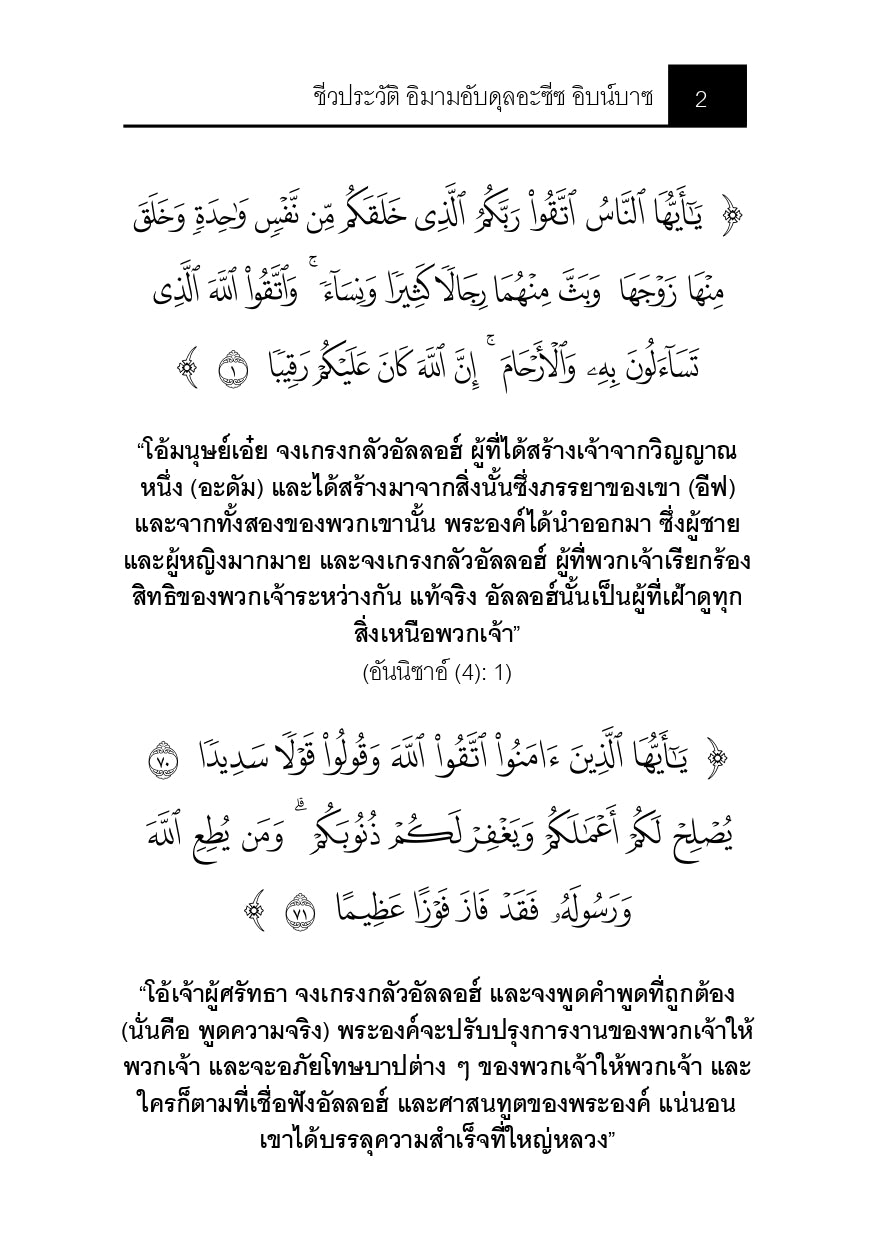 ชีวประวัติ อิมามอับดุลอะซีซ อิบน์บาซ 2
﴿ يَـٰٓأَيُّهَا ٱلنَّاسُ ٱتَّقُوا۟ رَبَّكُمُ ٱلَّذِى خَلَقَكُم مِّن نَّفْسٍ وَٰحِدَةٍ وَخَلَقَ
مِنْهَا زَوْجَهَا وَبَثَّ مِنْهُمَا رِجَالًا كَثِيرًا وَنِسَآءً ۚ وَٱتَّقُوا۟ ٱللَّهَ ٱلَّذِى
تَسَآءَلُونَ بِهِۦ وَٱلْأَرْحَامَ ۚ إِنَّ ٱللَّهَ كَانَ عَلَيْكُمْ رَقِيبًا ١ ﴾
“โอ้มนุษย์เอ๋ย จงเกรงกลัวอัลลอฮ์ ผู้ที่ได้สร้างเจ้าจากวิญญาณ
หนึ่ง (อะดัม) และได้สร้างมาจากสิ่งนั้นซึ่งภรรยาของเขา (อีฟ)
และจากทั้งสองของพวกเขานั้น พระองค์ได้นำออกมา ซึ่งผู้ชาย
และผู้หญิงมากมาย และจงเกรงกลัวอัลลอฮ์ ผู้ที่พวกเจ้าเรียกร้อง
สิทธิของพวกเจ้าระหว่างกัน แท้จริง อัลลอฮ์นั้นเป็นผู้ที่เฝ้าดูทุก
สิ่งเหนือพวกเจ้า”
(อันนิซาอ์ (4): 1)
﴿ يَـٰٓأَيُّهَا ٱلَّذِينَ ءَامَنُوا۟ ٱتَّقُوا۟ ٱللَّهَ وَقُولُوا۟ قَوْلًا سَدِيدًا ٧٠
يُصْلِحْ لَكُمْ أَعْمَـٰلَكُمْ وَيَغْفِرْ لَكُمْ ذُنُوبَكُمْ ۗ وَمَن يُطِعِ ٱللَّهَ
وَرَسُولَهُۥ فَقَدْ فَازَ فَوْزًا عَظِيمًا ٧١ ﴾
“โอ้เจ้าผู้ศรัทธา จงเกรงกลัวอัลลอฮ์ และจงพูดคำพูดที่ถูกต้อง
(นั่นคือ พูดความจริง) พระองค์จะปรับปรุงการงานของพวกเจ้าให้
พวกเจ้า และจะอภัยโทษบาปต่าง ๆ ของพวกเจ้าให้พวกเจ้า และ
ใครก็ตามที่เชื่อฟังอัลลอฮ์ และศาสนทูตของพระองค์ แน่นอน
เขาได้บรรลุความสำเร็จที่ใหญ่หลวง”